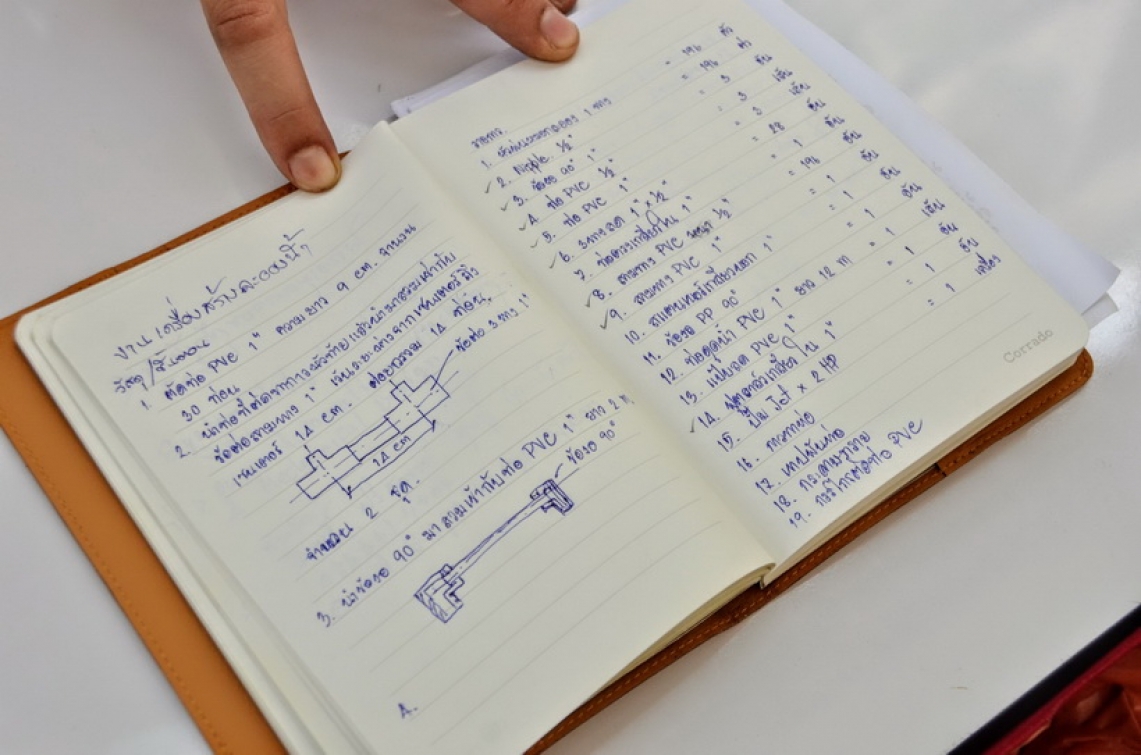 งานเครื่องสร้างละอองน้ำ
วัสดุ/ขั้นตอน
1. ตัดท่อ PVC 1" ความยาว 9 cm. จำนวน
30 ท่อน
2. นำท่อที่ตัด
ข้อต่อสามทาง 1"
เซนเตอร์ 14 cm.
14 ท่อน
ข้อต่อ 3 ทาง 1"
14 cm
จำนวน 2 ชุด.
3. นำข้องอ 90° มาสวมเข้ากับท่อ PVC 1" ยาว 2 m.
ข้องอ 90°
4.
รายการ
1. 1 ทาง = 196 ตัว
2. Nipple 1/2" = 196 ตัว
3. ข้องอ 90° 1" = 3 อัน
4. ท่อ PVC 1/2" = 3 เส้น
5. ท่อ PVC 1" = 3 เส้น
6. 3 ทางลด 1" x 1/2" = 28 อัน
7. ข้อตรงเกลียวใน 1" = 1 อัน
8. สามทาง PVC หนา 1/2" = 196 อัน
9. สามทาง PVC 1" = 1 อัน
10. เกลียวนอก 1" = 1 อัน
11. ข้องอ PP 90° = 1 อัน
12. ท่อดูดน้ำ PVC 1" ยาว 12 m = 1 เส้น
13. PVC 1" = 1 อัน
14. เกลียวใน 1" = 1 อัน
15. ปั๊ม Jet x 2 HP = 1 เครื่อง
16. กาวทาท่อ
17. เทปพันท่อ
18. กระดาษทราย
19. กรรไกรตัดท่อ PVC
Corrado